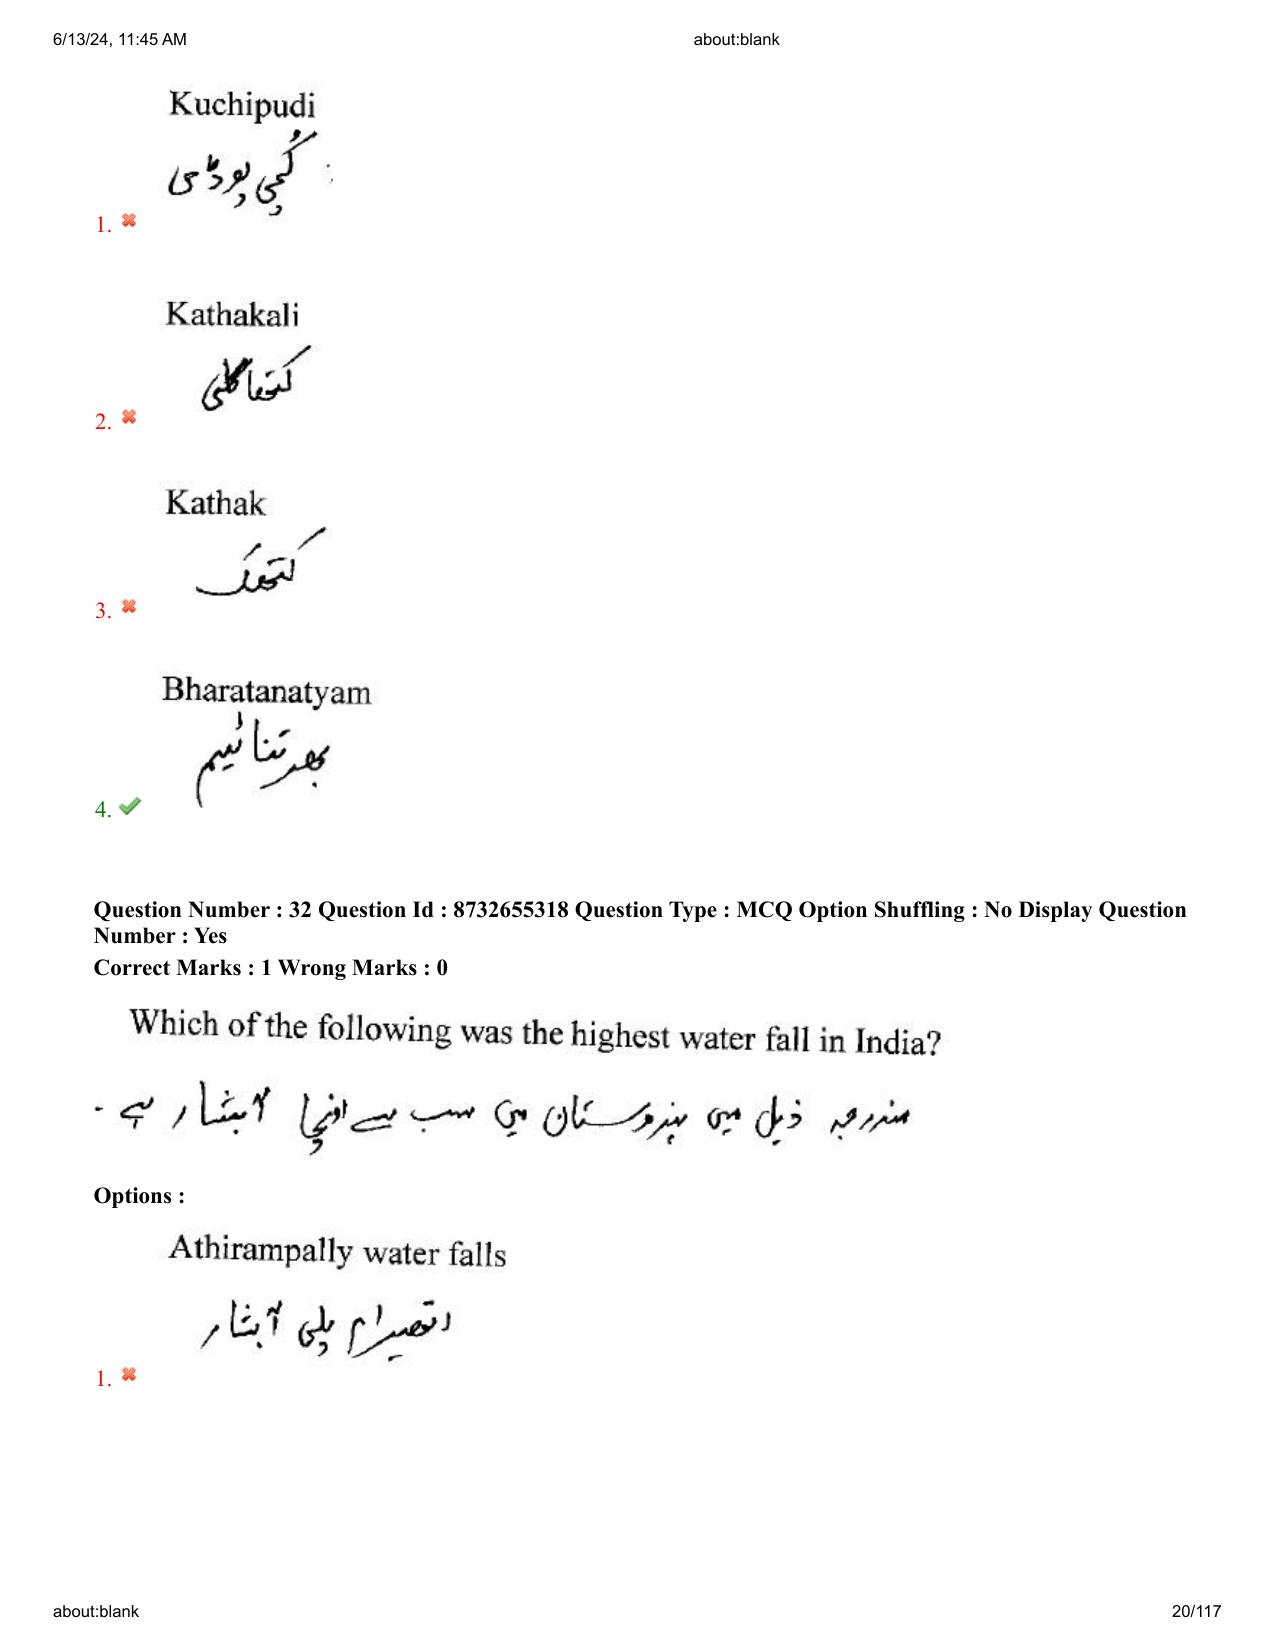 6/13/24, 11:45 AM about:blank
Kuchipudi
کُچی پوڈی
1.
Kathakali
کتھاکلی
2.
Kathak
کتھک
3.
Bharatanatyam
بھرتناٹیم
4.
Question Number : 32 Question Id : 8732655318 Question Type : MCQ Option Shuffling : No Display Question
Number : Yes
Correct Marks : 1 Wrong Marks : 0
Which of the following was the highest water fall in India?
مندرجہ ذیل میں ہندوستان میں سب سے اونچا آبشار ہے -
Options :
Athirampally water falls
اتھیرام پلی آبشار
1.
about:blank 20/117